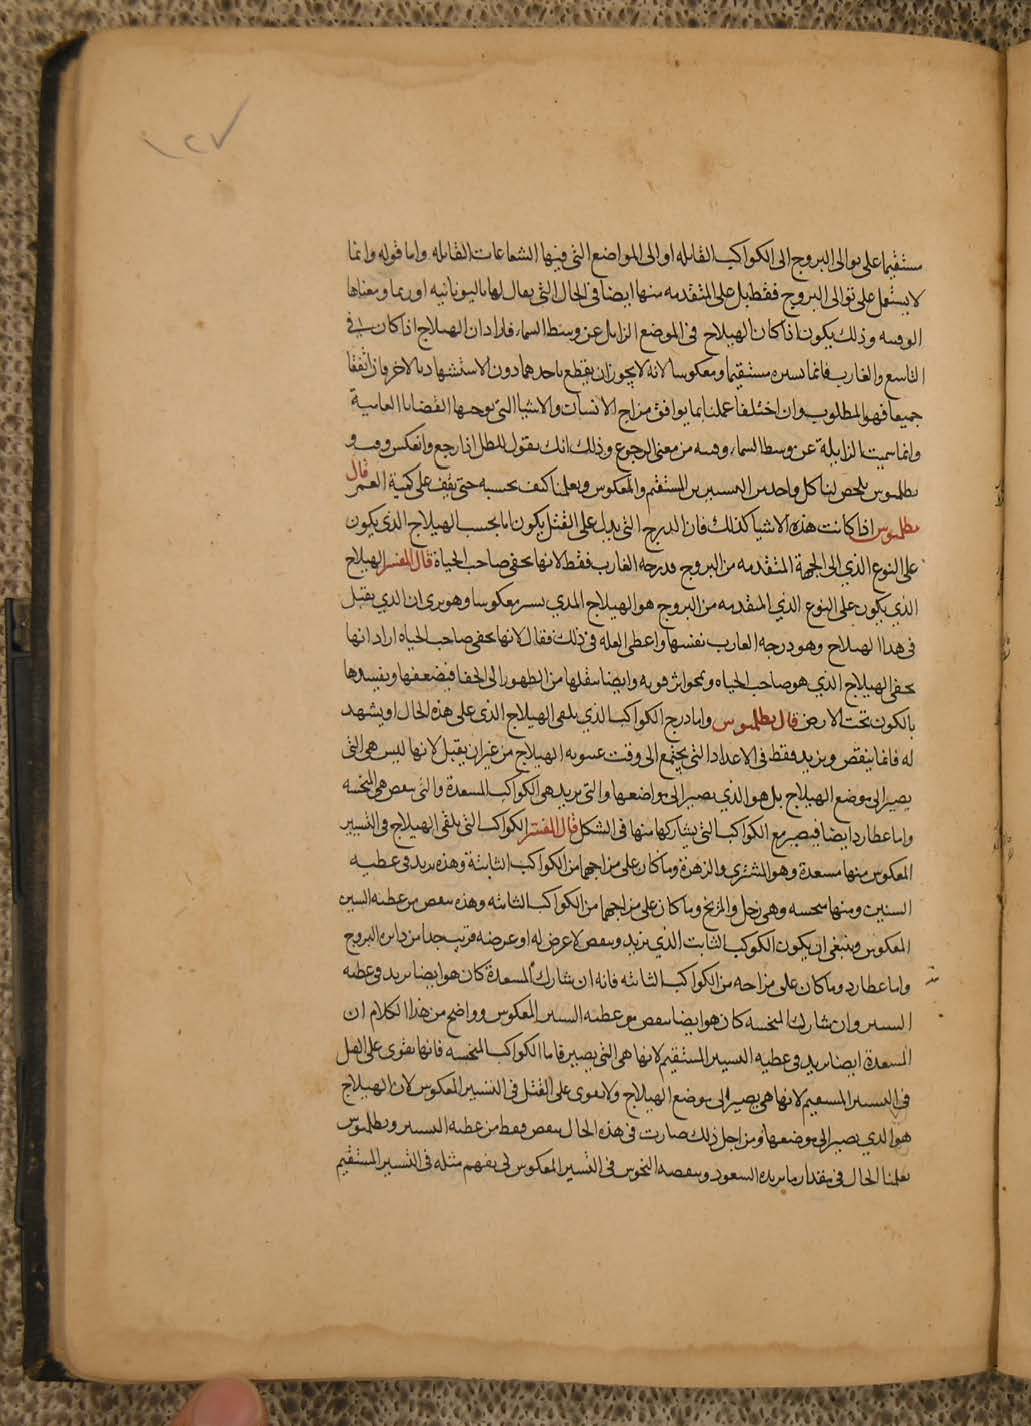 ١٢٧
مستقيما على توالى البروج الى الكواكب القاتله او الى المواضع التى فيها الشعاعات القاتله واما قوله وانما
لا يستعمل على توالى البروج فقط بل على المتقدمه منها ايضا فى الحال التى يقال لها باليونانيه اوريما ومعناها
وذلك يكون اذا كان الهيلاج فى الموضع الزايل عن وسط السماء فاراد ان الهيلاج اذا كان فى
التاسع والغارب فانما نسيره مستقيما ومعكوسا لانه لا يجوز ان يقطع باحدهما دون الاستشهاد بالاخر فان اتفقا
جميعا فهو المطلوب وان اختلفا عملنا بما يوافق مزاج الانسان والاشيا التى توجبها القضايا العامية
وانما سميت الزايلة عن وسط السماء من معنى الرجوع وذلك انك تقول للمطل اذا رجع وانعكس
بطلميوس يلخص لنا كل واحد من التسييرين المستقيم والمعكوس ويعلمنا كيف نحسبه حتى نقف على كمية العمر قال
بطلميوس اذا كانت هذه الاشيا كذلك فان الدرج التى تدل على القتل يكون اما بحسب الهيلاج الذى يكون
على النوع الذي الى الجهة المتقدمه من البروج فدرجه الغارب فقط لانها تخفى صاحب الحياة قال المفسر الهيلاج
الذى يكون على النوع الذي المتقدمه من البروج هو الهيلاج الذي يسير معكوسا وهو يرى ان الذي يقتل
فى هذا الهيلاج وهو درجه الغارب نفسها واعطى العله فى ذلك فقال لانها تخفى صاحب الحياه اراد انها
تخفى الهيلاج الذي هو صاحب الحياه وتخفى قوته وايضا ينقلها من الظهور الى الخفا فيضعفها ويفسدها
بالكون تحت الارض قال بطلميوس واما درج الكواكب الذي يلقى الهيلاج الذى على هذه الحال او يشهد
له فانما ينقص ويزيد فقط فى الاعداد التى يجتمع الى وقت غيبوبه الهيلاج من غير ان يقتل لانها ليس هى التى
يصير الى موضع الهيلاج بل هو الذى يصير الى مواضعها والتى يزيد هى الكواكب المسعدة والتى ينقص هى المنحسه
واما عطارد ايضا فيصير مع الكواكب التى يشاركها منها فى الشكل قال المفسر الكواكب التى يلقى الهيلاج فى التسيير
المعكوس منها مسعدة وهو المشترى والزهرة وما كان على مزاجهما من الكواكب الثابتة وهذه يزيد فى عطيه
السنين ومنها منحسه وهى زحل والمريخ وما كان على مزاجهما من الكواكب الثابته وهذه ينقص من عطيه السنين
المعكوس وينبغى ان يكون الكوكب الثابت الذى يزيد وينقص لا عرض له او عرضه قريب جدا من دايره البروج
واما عطارد وما كان على مزاجه من الكواكب الثابته فانه ان شارك المسعدة كان هو ايضا يزيد فى عطيه
التسيير وان شارك المنحسه كان هو ايضا ينقص من عطيه التسيير المعكوس وواضح من هذا الكلام ان
المسعدة ايضا يزيد فى عطيه التسيير المستقيم لانها هى التى يصير فاما الكواكب المنحسه فانها تقوى على القتل
فى التسيير المستقيم لانها هى يصير الى موضع الهيلاج ولا تقوى على القتل فى التسيير المعكوس لان الهيلاج
هو الذي يصير الى موضعها ومن اجل ذلك صارت فى هذه الحال ينقص فقط من عطيه التسيير وبطلميوس
يعلمنا الحال فى مقدار ما يزيده السعود وينقصه النحوس فى التسيير المعكوس لكى نفهم مثله فى التسيير المستقيم